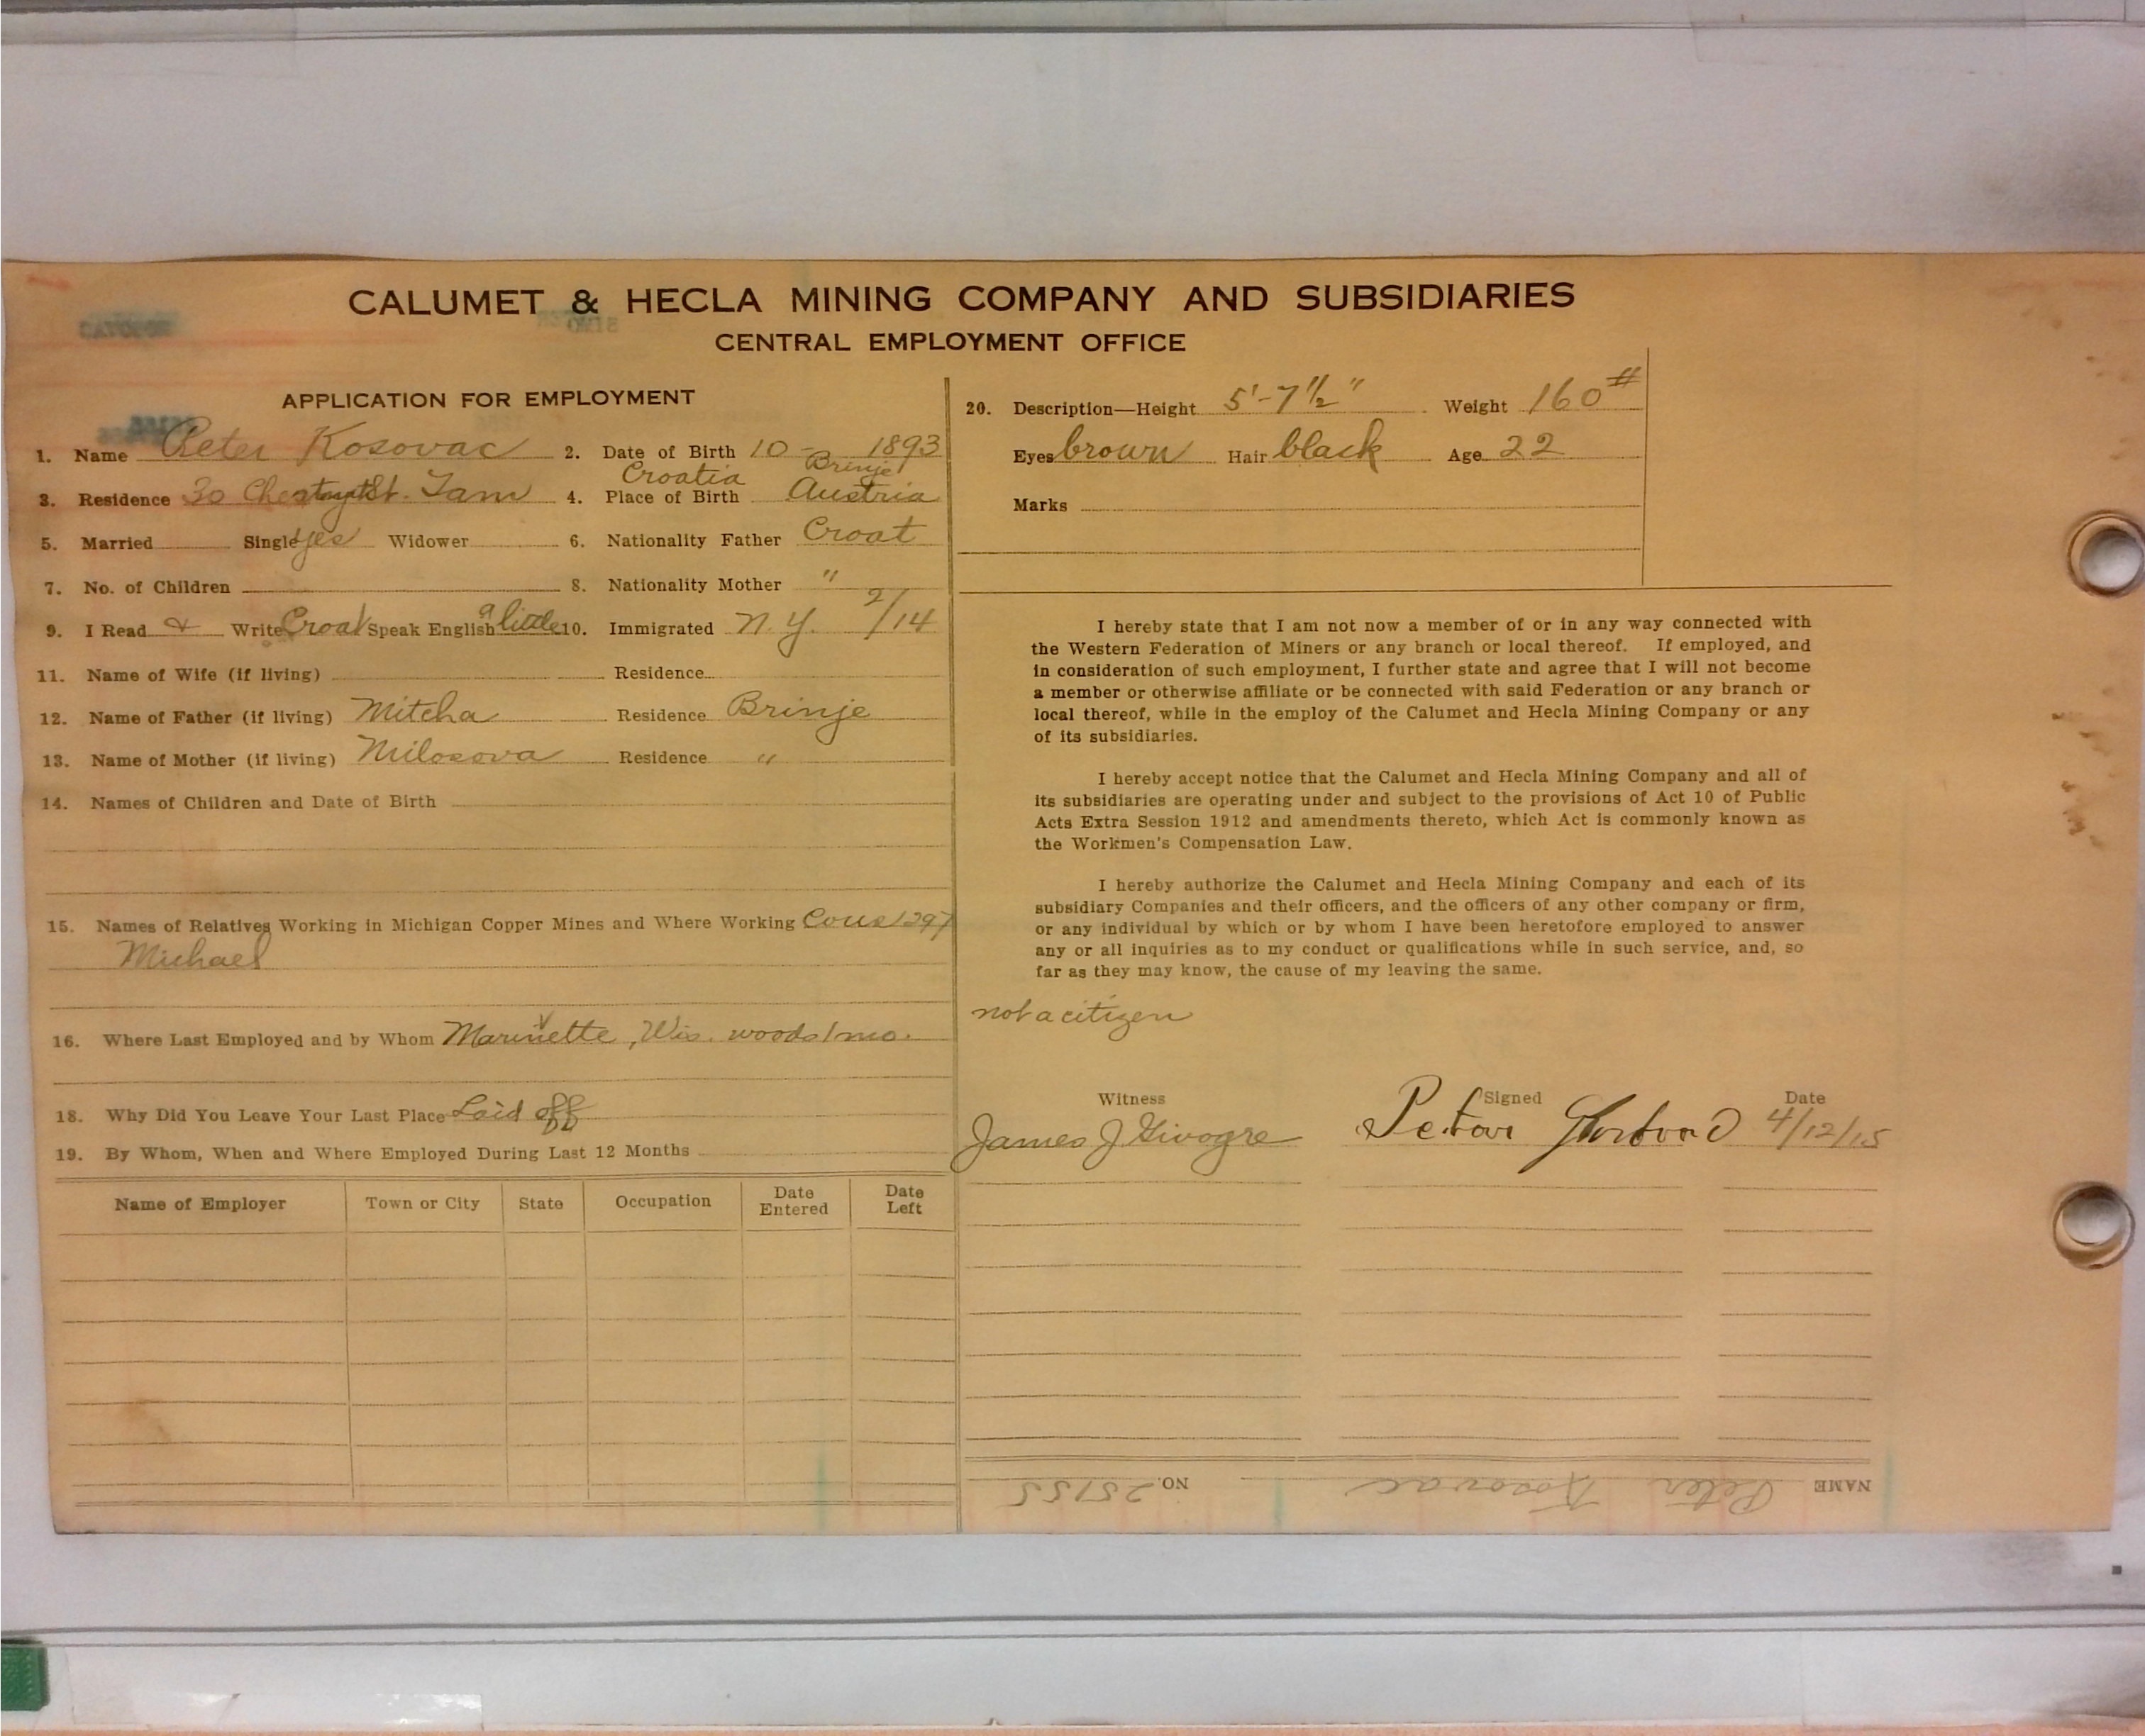 CALUMET & HECLA MINING COMPANY AND SUBSIDIARIES
CENTRAL EMPLOYMENT OFFICE
APPLICATION FOR EMPLOYMENT
1. Name Peter Kosovac 2. Date of Birth 10 - 1893
Croatia Brinje
3. Residence 30 St. Tam 4. Place of Birth Austria
5. Married Single yes Widower 6. Nationality Father Croat
7. No. of Children 8. Nationality Mother "
9. I Read & Write Croat Speak English a little 10. Immigrated N.Y. 2/14
11. Name of Wife (if living) Residence
12. Name of Father (if living) Mitcha Residence Brinje
13. Name of Mother (if living) Milosova Residence "
14. Names of Children and Date of Birth
15. Names of Relatives Working in Michigan Copper Mines and Where Working
Michael
16. Where Last Employed and by Whom Marinette, Wis. woods 1 mo.
18. Why Did You Leave Your Last Place Laid off
19. By Whom, When and Where Employed During Last 12 Months
Name of Employer Town or City State Occupation Date Entered Date Left
20. Description—Height 5'-7 1/2" Weight 160#
Eyes brown Hair black Age 22
Marks
I hereby state that I am not now a member of or in any way connected with
the Western Federation of Miners or any branch or local thereof. If employed, and
in consideration of such employment, I further state and agree that I will not become
a member or otherwise affiliate or be connected with said Federation or any branch or
local thereof, while in the employ of the Calumet and Hecla Mining Company or any
of its subsidiaries.
I hereby accept notice that the Calumet and Hecla Mining Company and all of
its subsidiaries are operating under and subject to the provisions of Act 10 of Public
Acts Extra Session 1912 and amendments thereto, which Act is commonly known as
the Workmen's Compensation Law.
I hereby authorize the Calumet and Hecla Mining Company and each of its
subsidiary Companies and their officers, and the officers of any other company or firm,
or any individual by which or by whom I have been heretofore employed to answer
any or all inquiries as to my conduct or qualifications while in such service, and, so
far as they may know, the cause of my leaving the same.
not a citizen
Witness Signed Date
James J 4/12/15
NAME Peter Kosovac NO. 25155